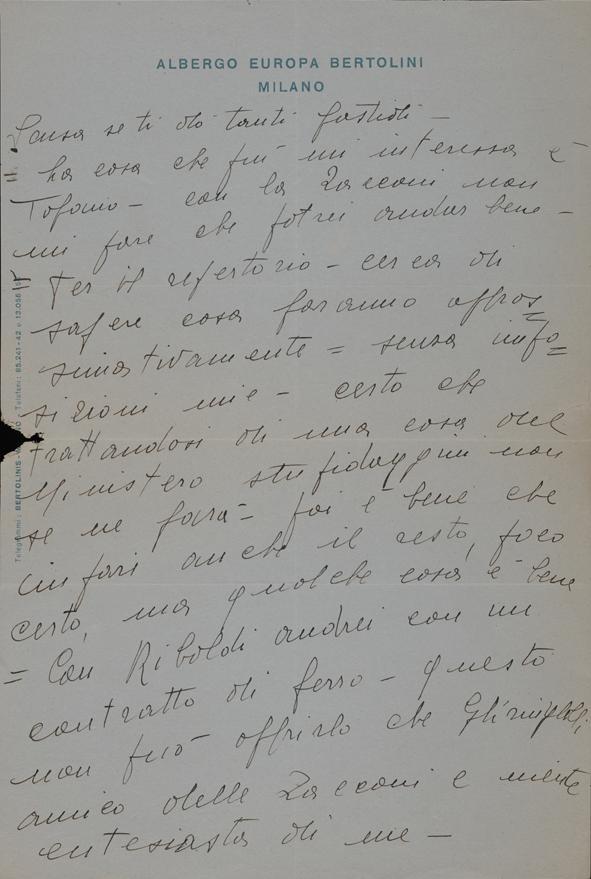 ALBERGO EUROPA BERTOLINI
MILANO
Scusa se ti dò tanti fastidi –
= La cosa che più mi interessa è
Tofano – con la Zacconi non
mi pare che potrei andar bene –
= Per il repertorio – cerca di
sapere cosa faranno appros
simativamente = senza impo
sizioni mie – certo che
trattandosi di una cosa del
Ministero stupidaggini non
se ne farà – poi è bene che
impari anche il resto, poco
certo, ma qualche cosa è bene
= Con Riboldi andrei con un
contratto di ferro – questo
non può offrirlo che
amico delle Zacconi e niente
entusiasta di me –
Telegrammi: BERTOLINIS - MILANO - Telefoni: 85.241-42